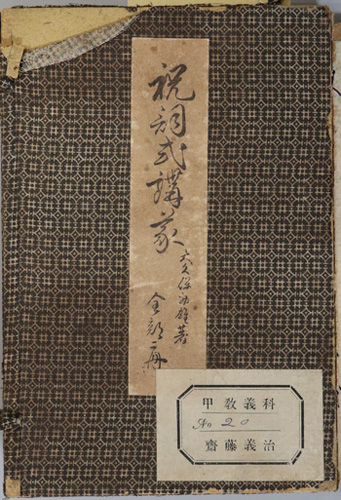 祝詞式講義
大久保初雄著
全部一冊
甲教義科
No 20
齋藤義治